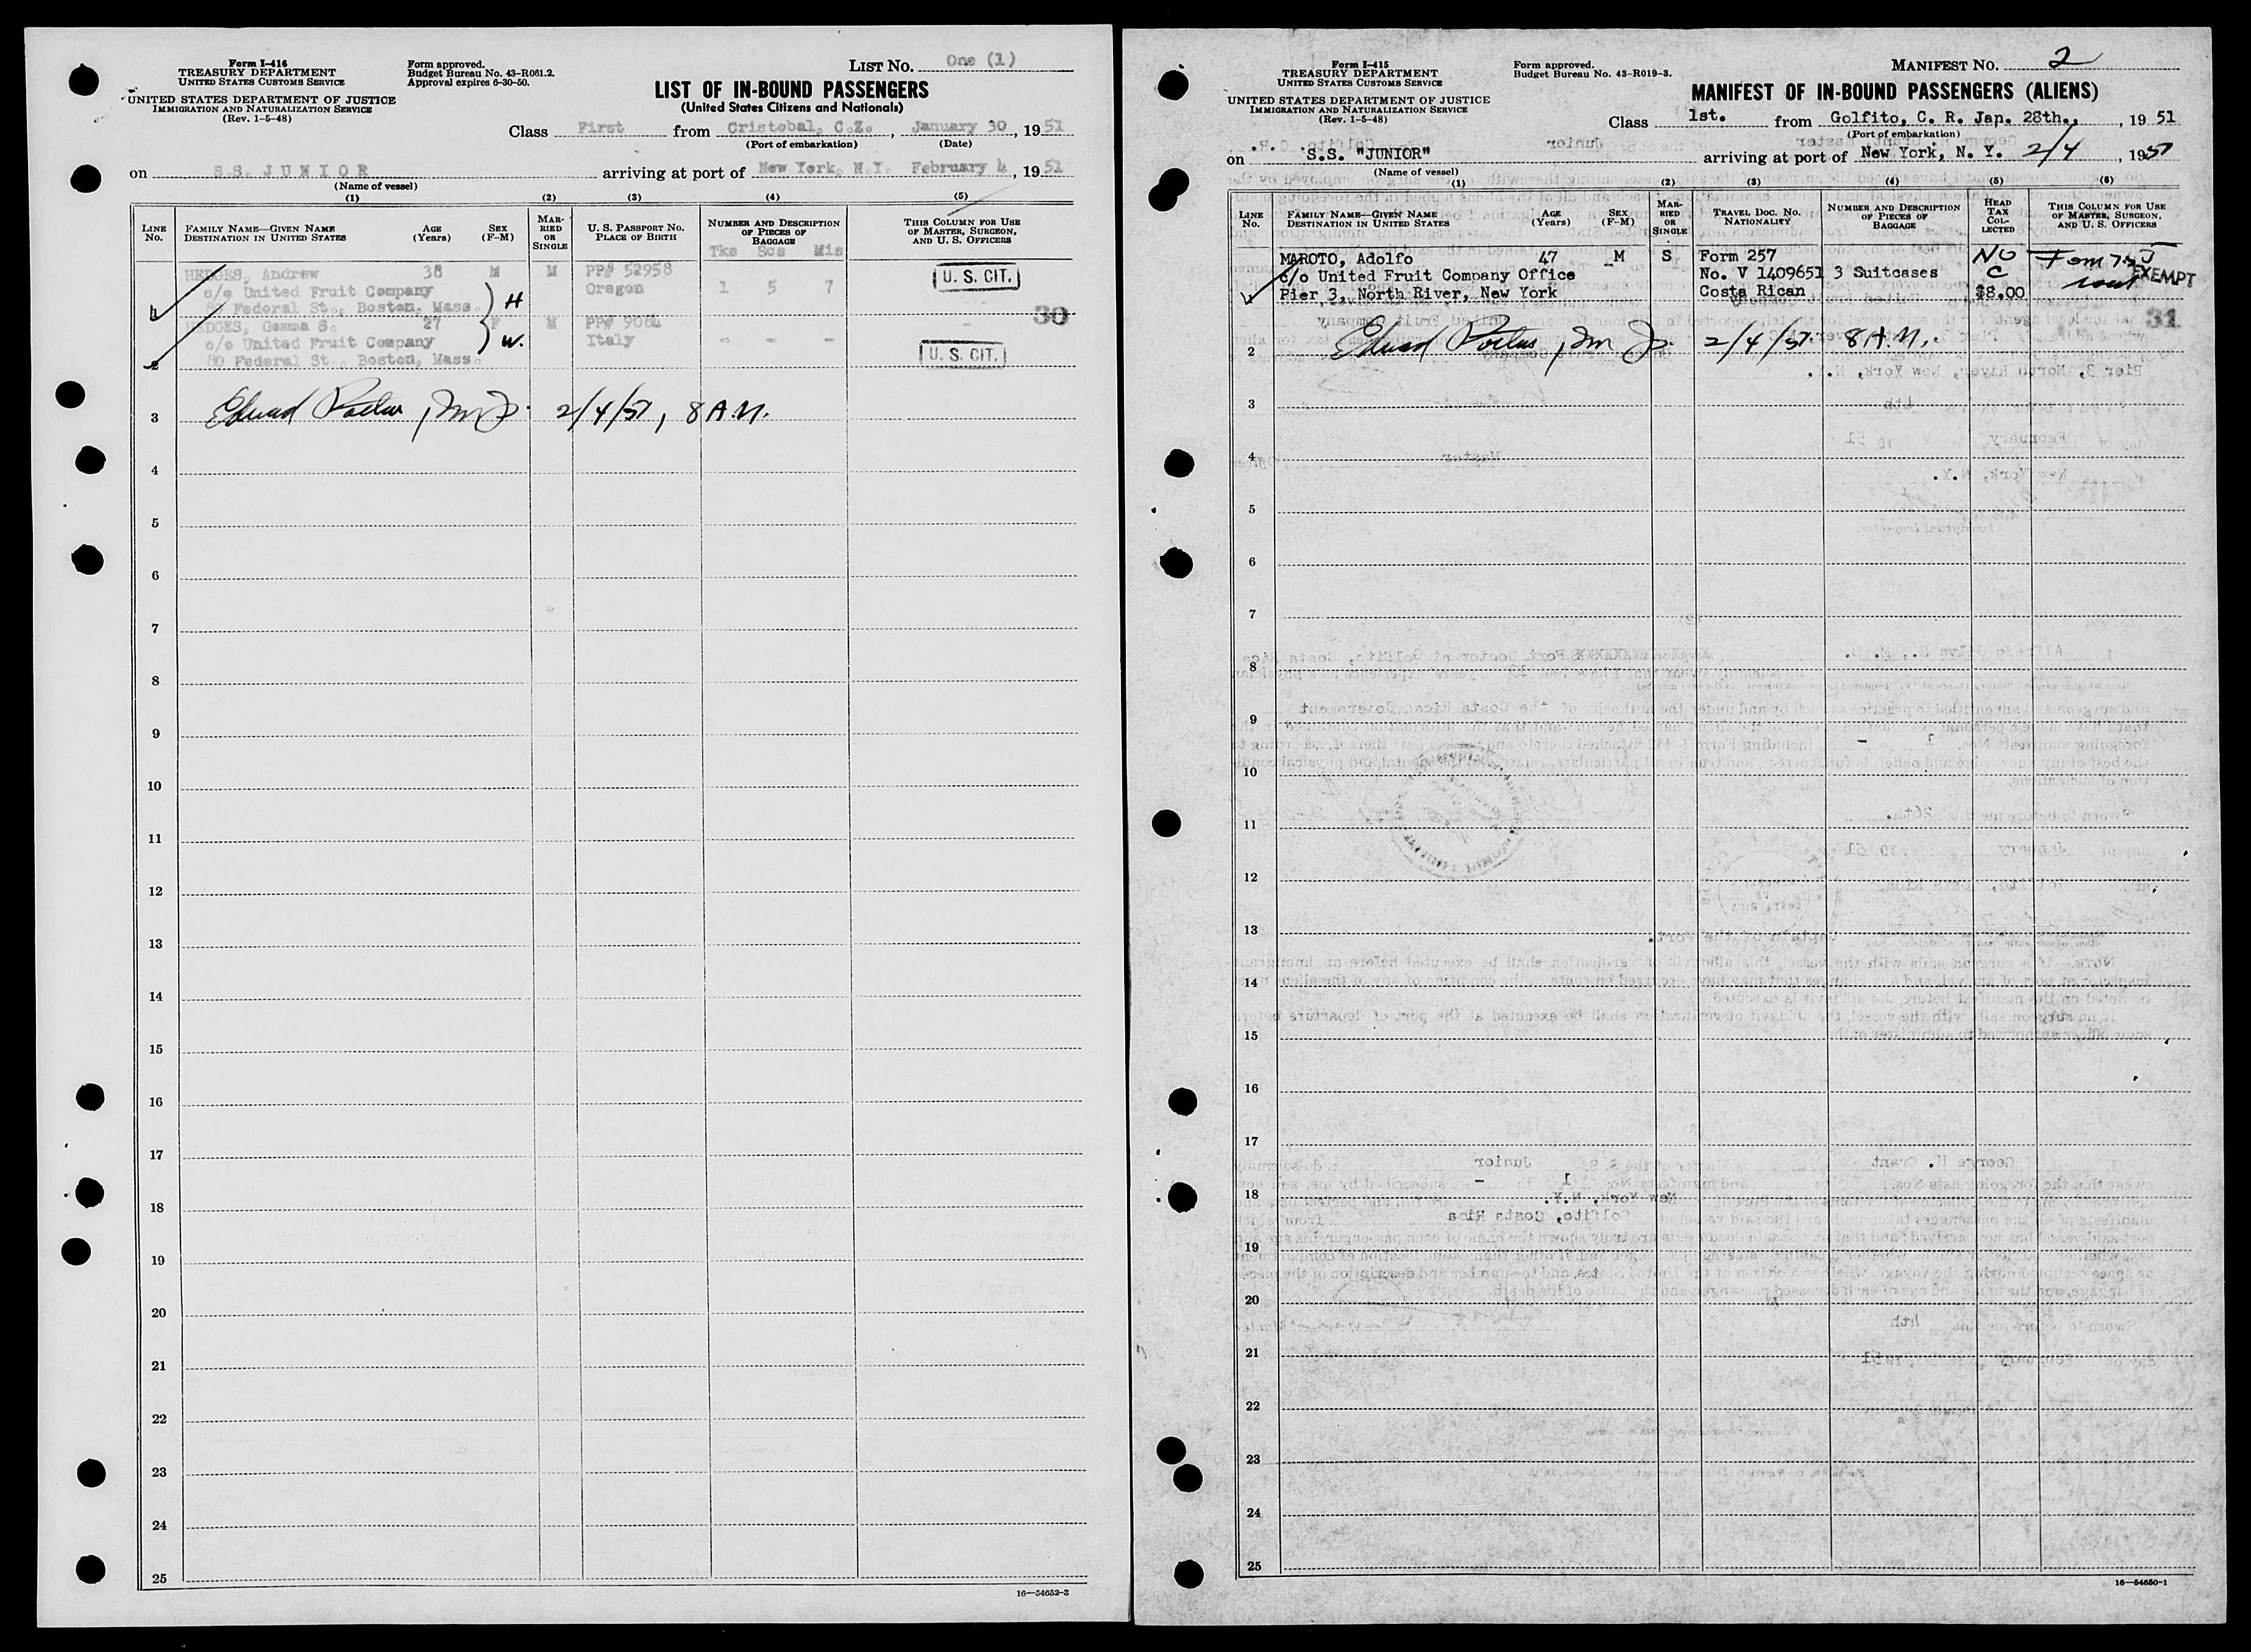 Form I-416
TREASURY DEPARTMENT
UNITED STATES CUSTOMS SERVICE
UNITED STATES DEPARTMENT OF JUSTICE
IMMIGRATION AND NATURALIZATION SERVICE
(Rev. 1-5-48)
Form approved.
Budget Bureau No. 43-R061.2.
Approval expires 6-30-50.
LIST No. One (1)
LIST OF IN-BOUND PASSENGERS
(United States Citizens and Nationals)
Class First from Cristobal, C.Z., January 30, 1951
(Port of embarkation) (Date)
on S.S. JUNIOR arriving at port of New York, N.Y. February 4, 1951
(Name of vessel)
(1) (2) (3) (4) (5)
LINE No. FAMILY NAME—GIVEN NAME DESTINATION IN UNITED STATES AGE (Years) SEX (F-M) MARRIED OR SINGLE U. S. PASSPORT No. PLACE OF BIRTH NUMBER AND DESCRIPTION OF PIECES OF BAGGAGE THIS COLUMN FOR USE OF MASTER, SURGEON, AND U. S. OFFICERS
Tks Scs Mis
HEDGES, Andrew 38 M M PP# 52958 U. S. CIT.
c/o United Fruit Company Oregon 1 5 7
1 80 Federal St., Boston, Mass. H 30
HEDGES, Gemma S. 27 F M PP# 9084
c/o United Fruit Company W. Italy - - -
2 80 Federal St., Boston, Mass. U. S. CIT.
3 2/4/51, 8 A.M.
4
5
6
7
8
9
10
11
12
13
14
15
16
17
18
19
20
21
22
23
24
25
16—54652-3
Form I-415
TREASURY DEPARTMENT
UNITED STATES CUSTOMS SERVICE
UNITED STATES DEPARTMENT OF JUSTICE
IMMIGRATION AND NATURALIZATION SERVICE
(Rev. 1-5-48)
Form approved.
Budget Bureau No. 43-R019-3.
MANIFEST No. 2
MANIFEST OF IN-BOUND PASSENGERS (ALIENS)
Class 1st. from Golfito, C. R. Jan. 28th., 1951
(Port of embarkation)
on S.S. "JUNIOR" arriving at port of New York, N. Y. 2/4, 1951
(Name of vessel)
(1) (2) (3) (4) (5) (6)
LINE No. FAMILY NAME—GIVEN NAME DESTINATION IN UNITED STATES AGE (Years) SEX (F-M) MARRIED OR SINGLE TRAVEL DOC. No. NATIONALITY NUMBER AND DESCRIPTION OF PIECES OF BAGGAGE HEAD TAX COLLECTED THIS COLUMN FOR USE OF MASTER, SURGEON, AND U. S. OFFICERS
MAROTO, Adolfo 47 M S Form 257 No
c/o United Fruit Company Office No. V 1409651 3 Suitcases C EXEMPT
1 Pier 3, North River, New York Costa Rican $8.00
31
2 2/4/51. 8 A.M.
3
4
5
6
7
8
9
10
11
12
13
14
15
16
17
18
19
20
21
22
23
24
25
16—54650-1